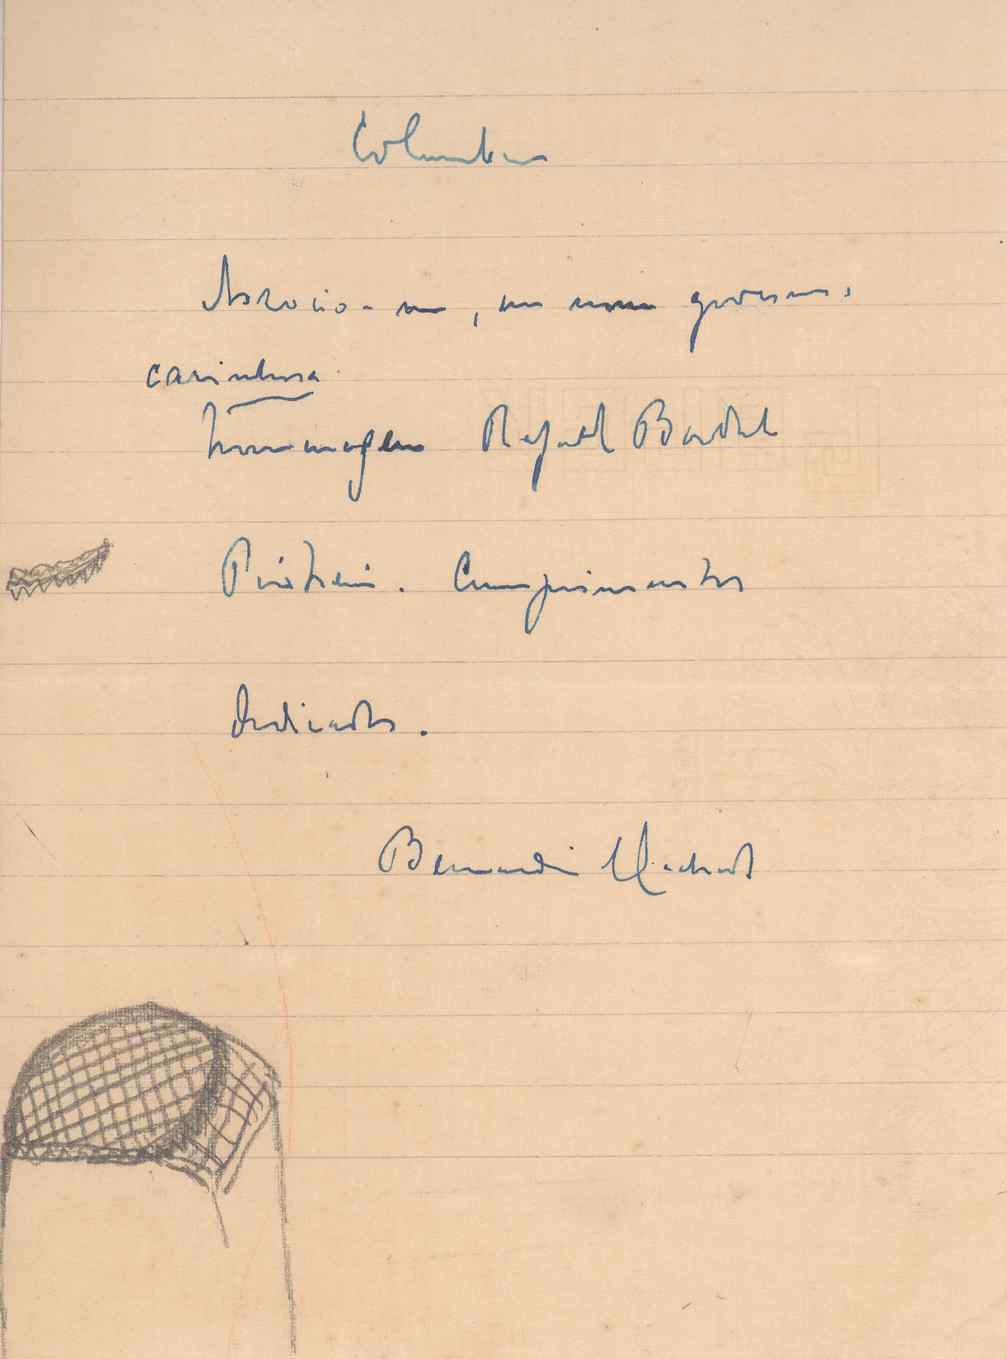 Columbano
Associo-me, em nome governo,
carinhosa
homenagem Rafael Bordalo
Pinheiro. Cumprimentos
dedicados.
Bernardino Machado